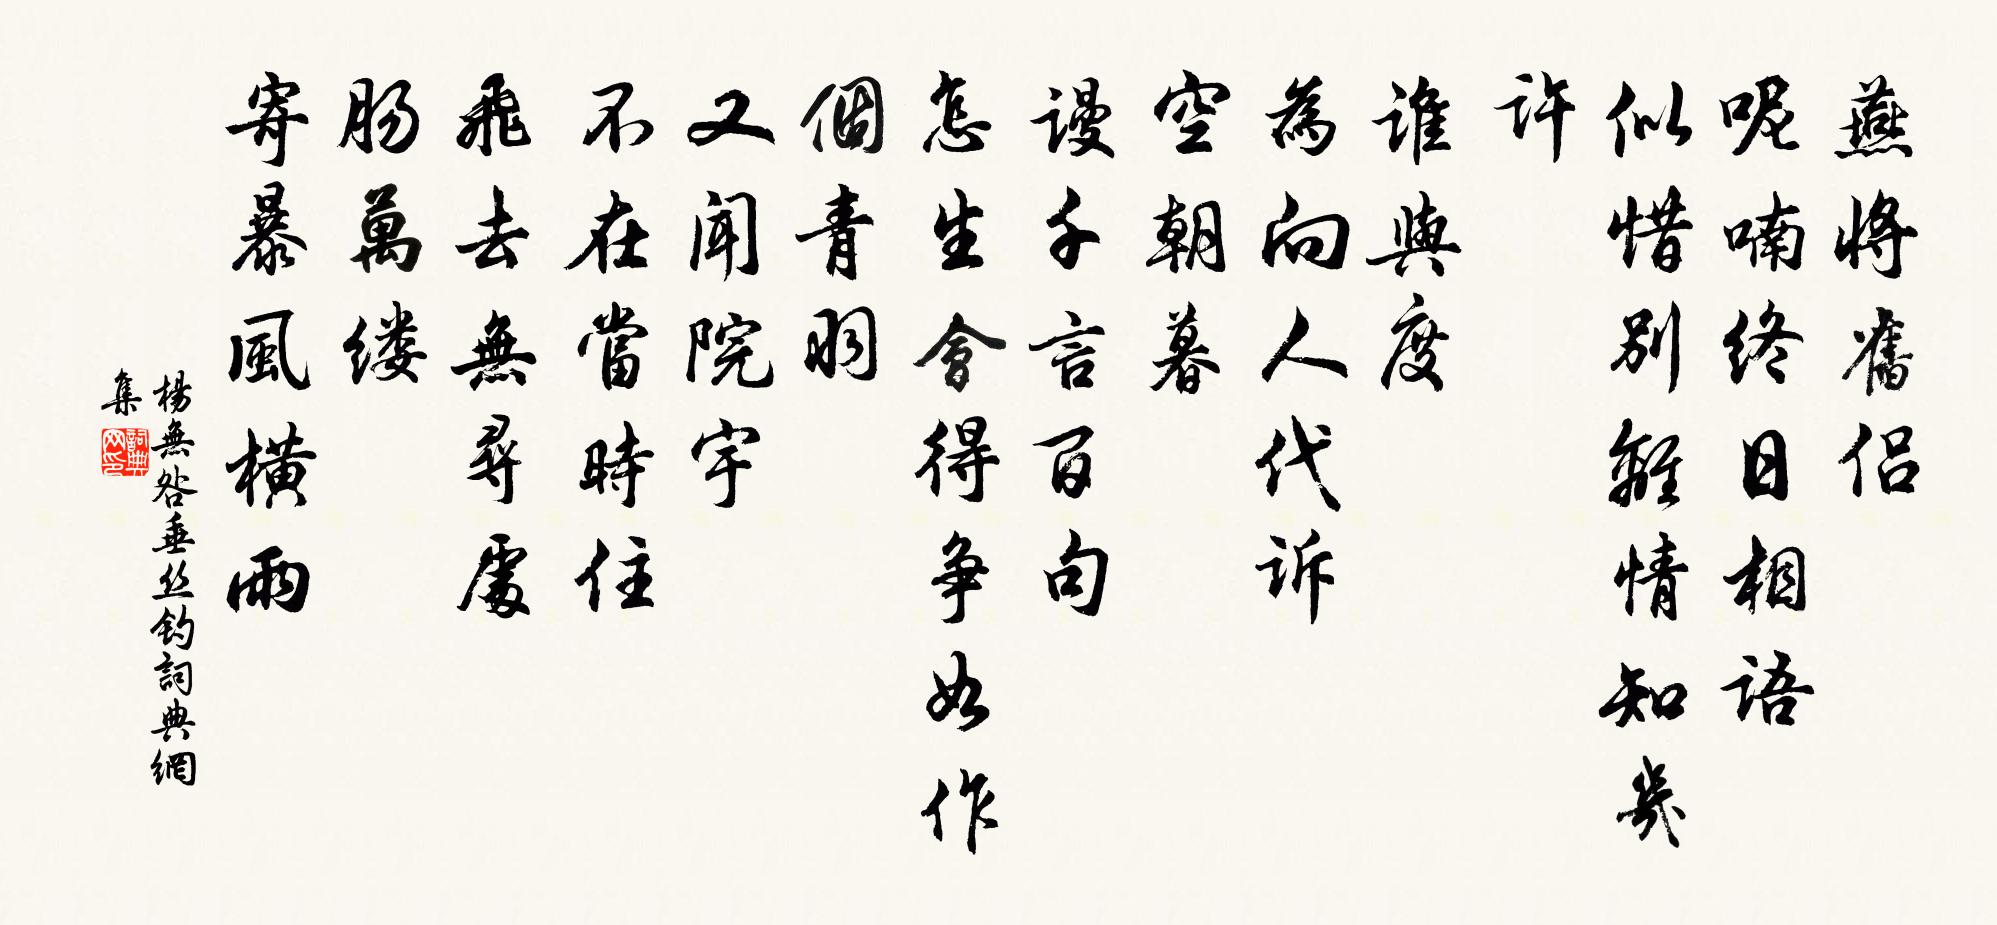 燕將舊侣
呢喃终日相語
似惜别離情知幾
許
誰與度
為向人代诉
空朝暮
谩千言百句
怎生會得争如作
個青羽
又聞院宇
不在當時住
飛去無尋處
肠萬缕
寄暴風横雨
楊無咎垂丝钓詞典網
集
詞典网印